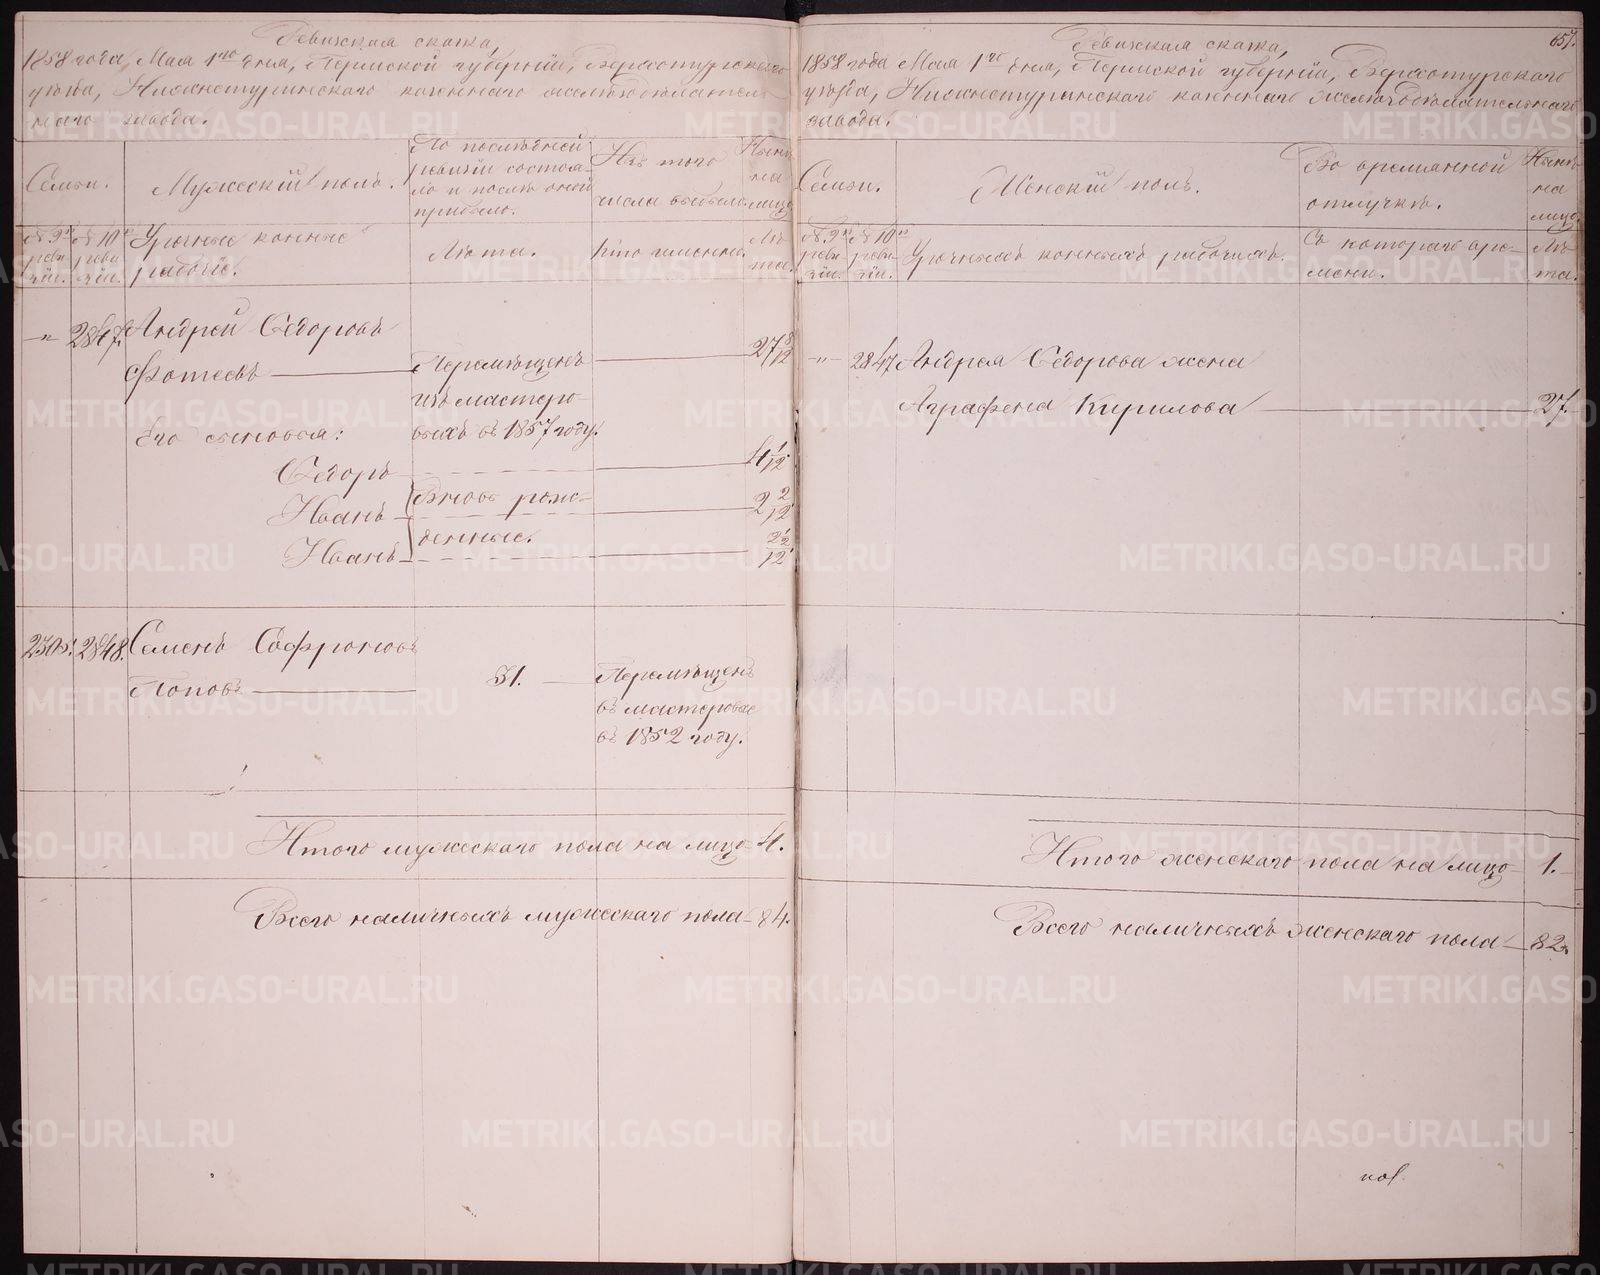 Ревизская сказка,
1858 года, Мая 1го дня, Пермской губернiи, Верхотурскаго
уѣзда, Нижнетуринскаго казеннаго желѣзодѣлатель-
наго завода.
Семьи.
Мужескiй полъ.
По послѣдней
ревизiи состоя-
ло и послѣ оной
прибыло.
Изъ того
числа выбыло.
Нынѣ
на
лицо
№ 9й
реви-
зiи.
№ 10й
реви-
зiи.
Урочные конные
рабочiе.
Лѣта.
Кто именно.
Лѣ-
та.
-"- 2847. Андрей Ѳедоровъ
Фотеевъ Перемѣщенъ 27 8/12
изъ мастеро-
выхъ въ 1857 году.
Его сыновья:
Ѳедоръ 4 1/12
Иванъ Вновь рож- 2 2/12
Иванъ денные. 2/12
2305. 2848. Семенъ Софроновъ
Поповъ 31. Перемѣщенъ
въ мастеровые
въ 1852 году.
Итого мужескаго пола на лицо 4.
Всего наличныхъ мужескаго пола 84.
657.
Ревизская сказка,
1858 года Мая 1го дня, Пермской губернiи, Верхотурскаго
уѣзда, Нижнетуринскаго казеннаго желѣзодѣлательнаго
завода.
Семьи.
Женскiй полъ.
Во временной
отлучкѣ.
Нынѣ
на
лицо.
№ 9й
реви-
зiи.
№ 10й
реви-
зiи.
Урочныхъ конныхъ рабочихъ.
Съ котораго вре-
мени.
Лѣ-
та.
-"- 2847 Андрея Ѳедорова жена
Аграфена Кирилова 27.
Итого женскаго пола на лицо 1.
Всего наличныхъ женскаго пола 82.
METRIKI.GASO-URAL.RU